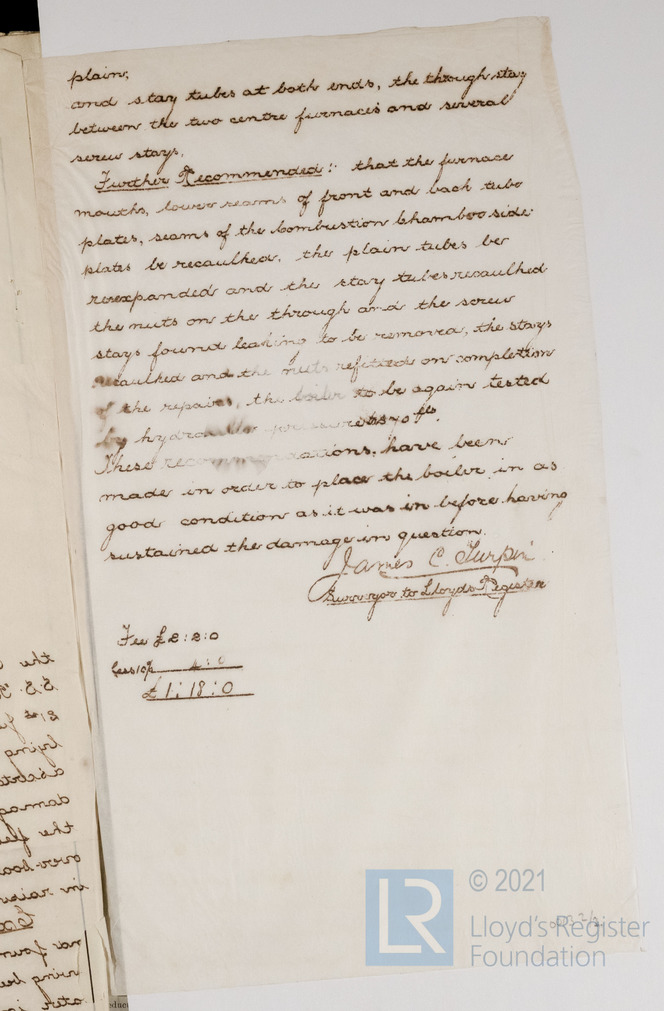 plain,
and stay tubes at both ends, the through stay
between the two centre furnaces and several
screw stays.
Further Recommended:- that the furnace
mouths, lower seams of front and back tube
plates, seams of the combustion chamber side
plates be recaulked. the plain tubes be
reexpanded and the stay tubes recaulked
the nuts on the through and the screw
stays found leaking to be removed, the stays
recaulked and the nuts refitted on completion
of the repairs, the boiler to be again tested
by hydraulic pressure to 70 lbs.
These recommendations, have been
made in order to place the boiler in as
good condition as it was in before having
sustained the damage in question.
James C. Turpin
Surveyor to Lloyds Register
Fee £2:2:0
Less 10% 4:0
£1:18:0
the
S.S.
21st
lying
damag
the
over boa
in raise
now foun
ring
ater
educ
© 2021
LR
Lloyd's Register
Foundation